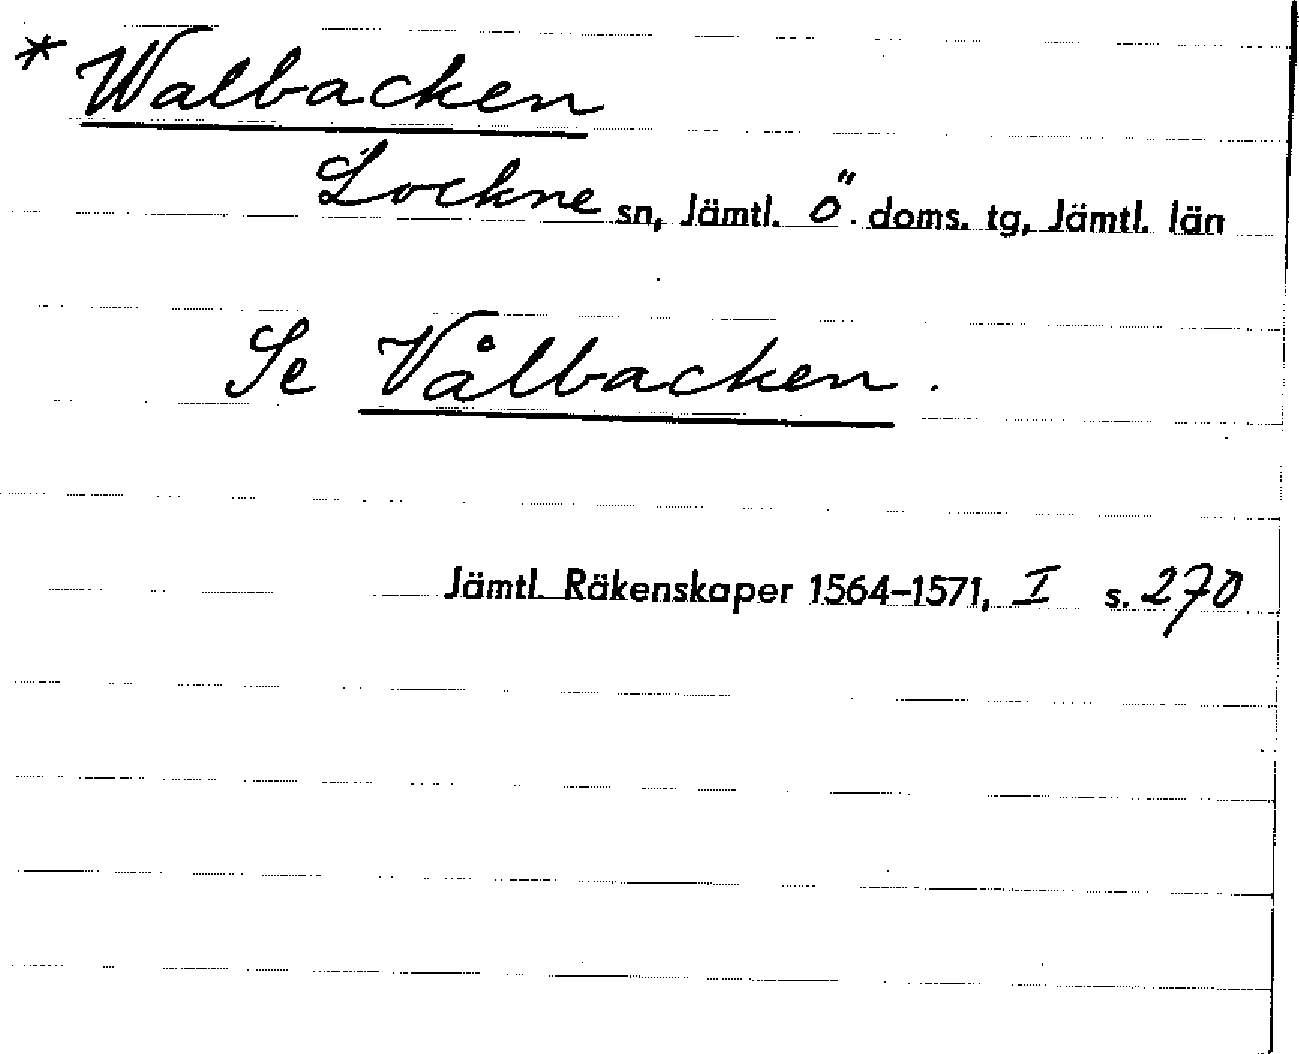 * Walbacken
Lockne sn, Jämtl. Ö. doms. tg, Jämtl. län
Se Vålbacken.
Jämtl. Räkenskaper 1564–1571, I s. 270